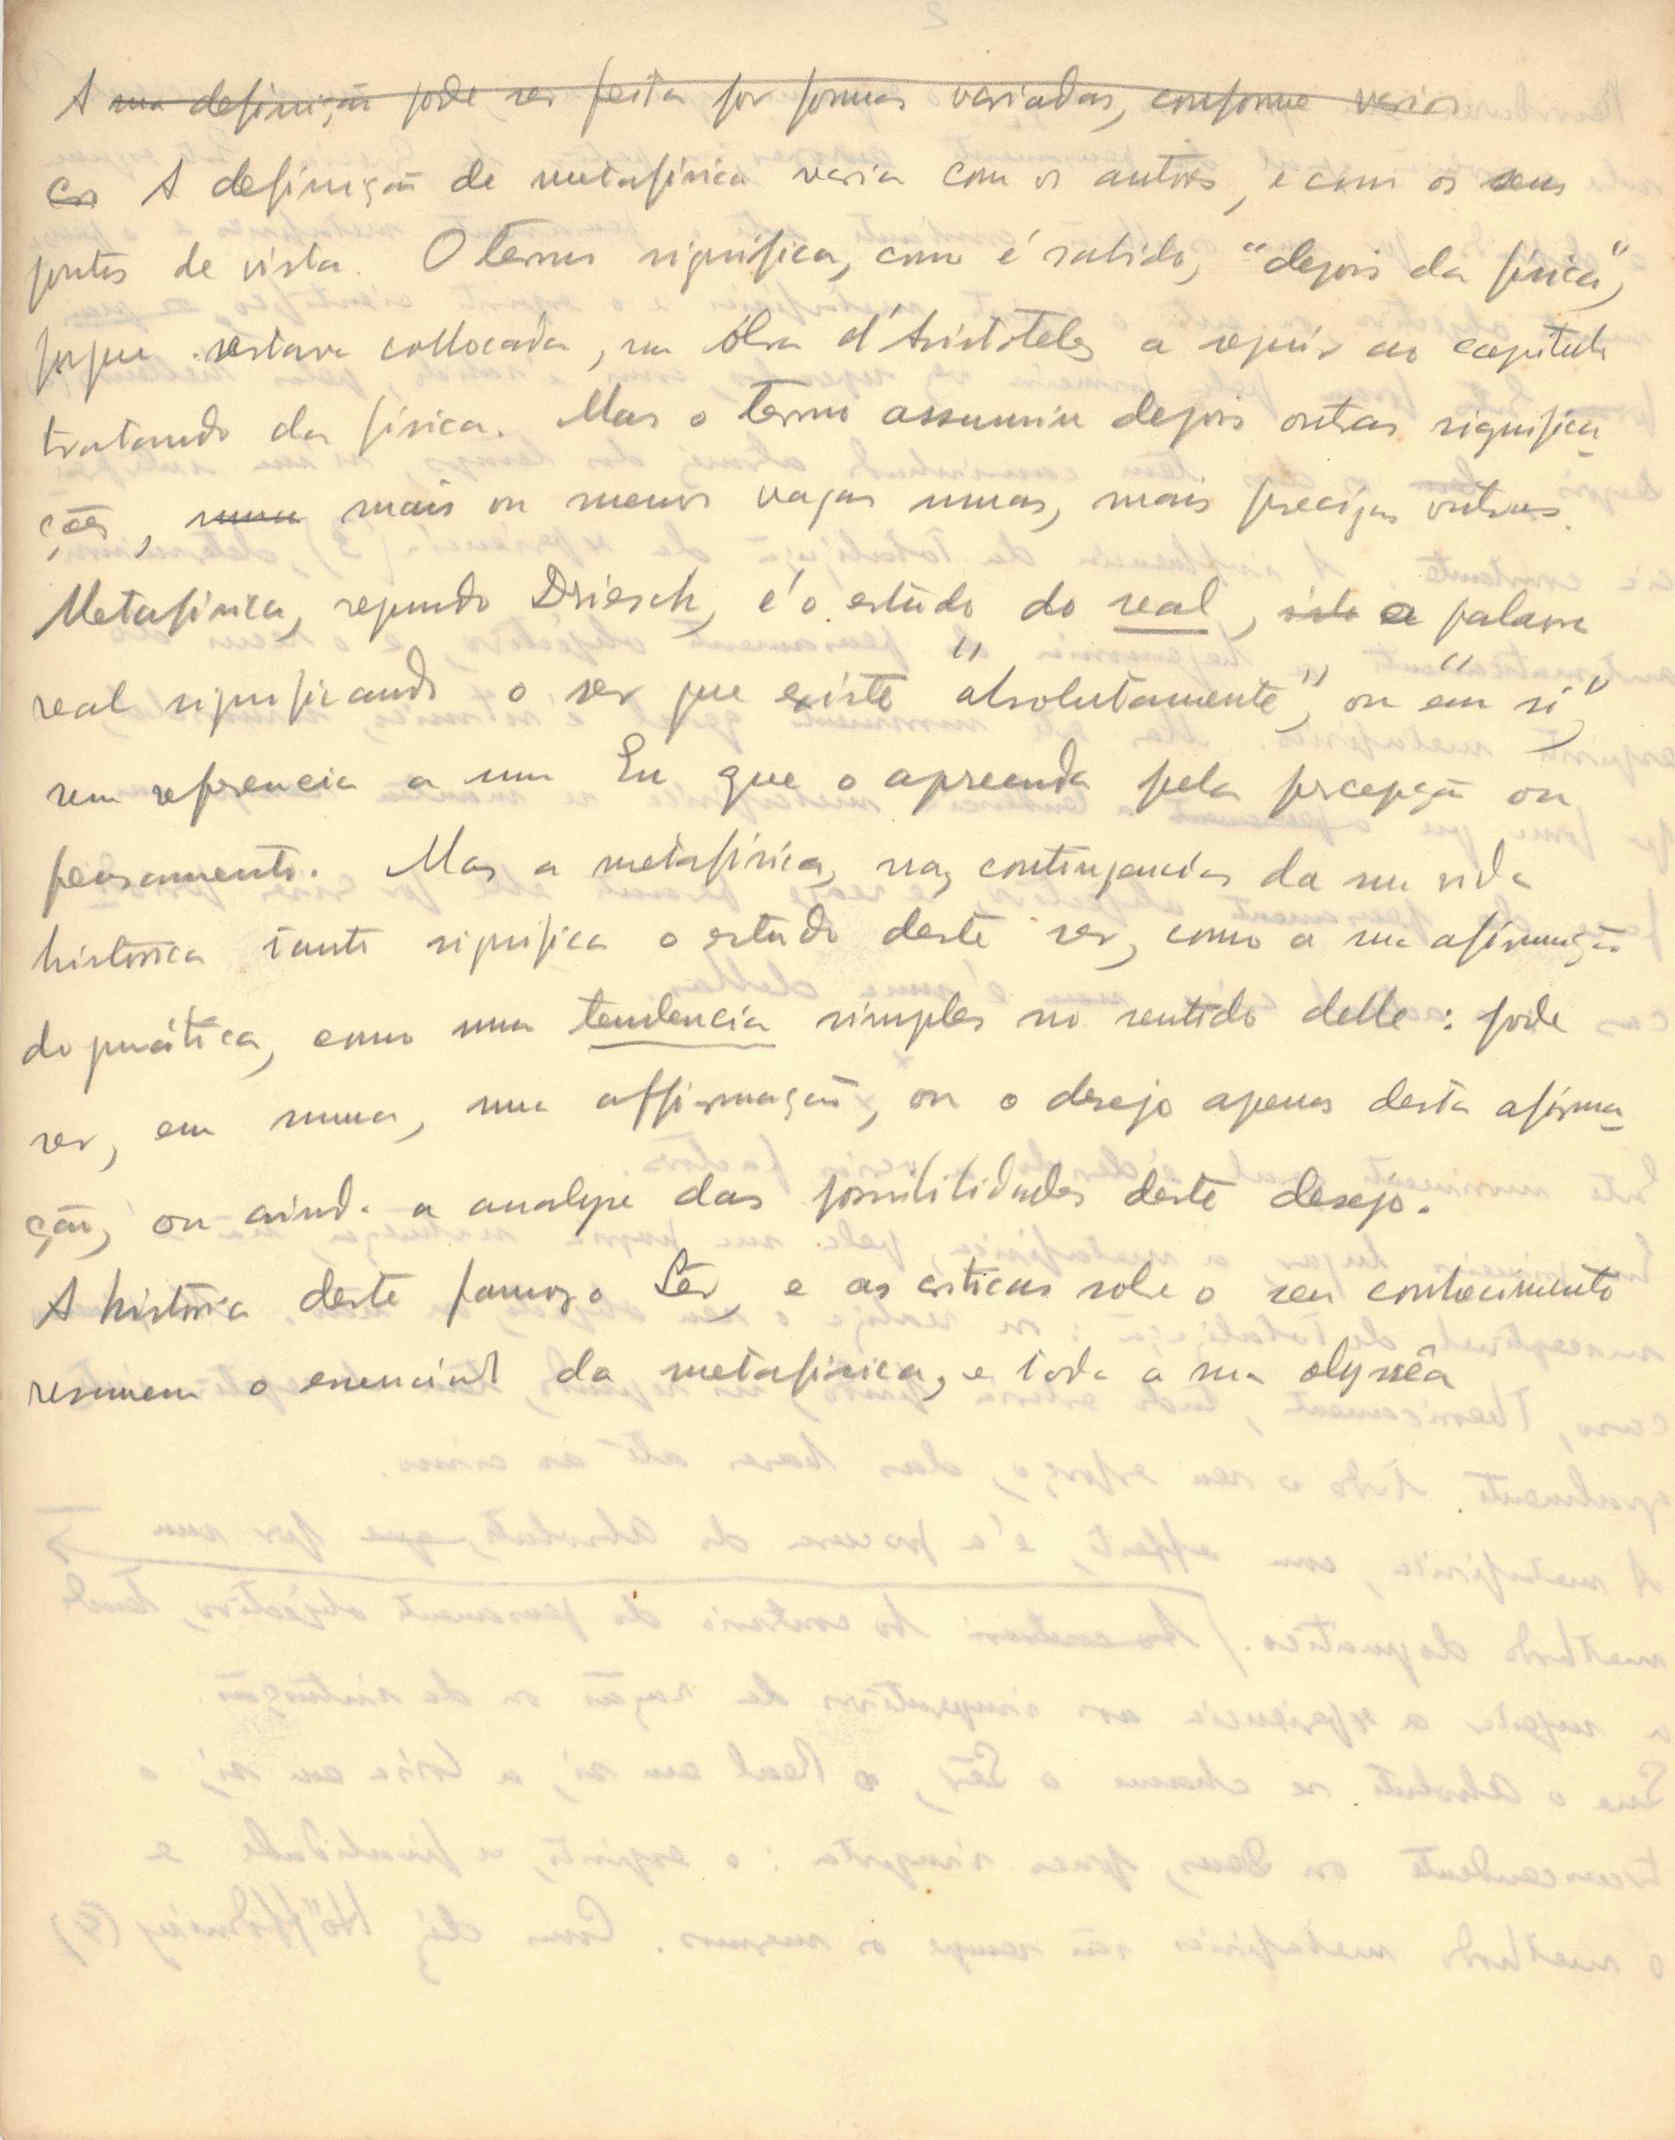 A sua definição pode ser feita por formas variadas, conforme varios
es A definição de metafisica varia com os autores, e com os seus
pontos de vista. O termo significa, como é sabido, "depois da física",
porque estava collocada, na obra d'Aristoteles a seguir ao capitulo
tratando da física. Mas o termo assumiu depois outras significa-
ções, numa mais ou menos vagas umas, mais precizas outras.
Metafisica, segundo Driesch, é o estudo do real, isto a palavra
real significando o ser que existe "absolutamente", ou "em si",
sem referencia a um Eu que o apreenda pela percepção ou
pensamento. Mas a metafísica, nas contingencias da sua vida
historica tanto significa o estudo deste ser, como a sua afirmação
dogmática, como uma tendencia simples no sentido delle: pode
ser, em suma, uma affirmação, ou o desejo apenas desta afirma-
ção, ou ainda a analyse das possibilidades deste desejo.
A historia deste famozo Sêr, e as criticas sobre o seu conhecimento
resumem o essencial da metafisica, e toda a sua